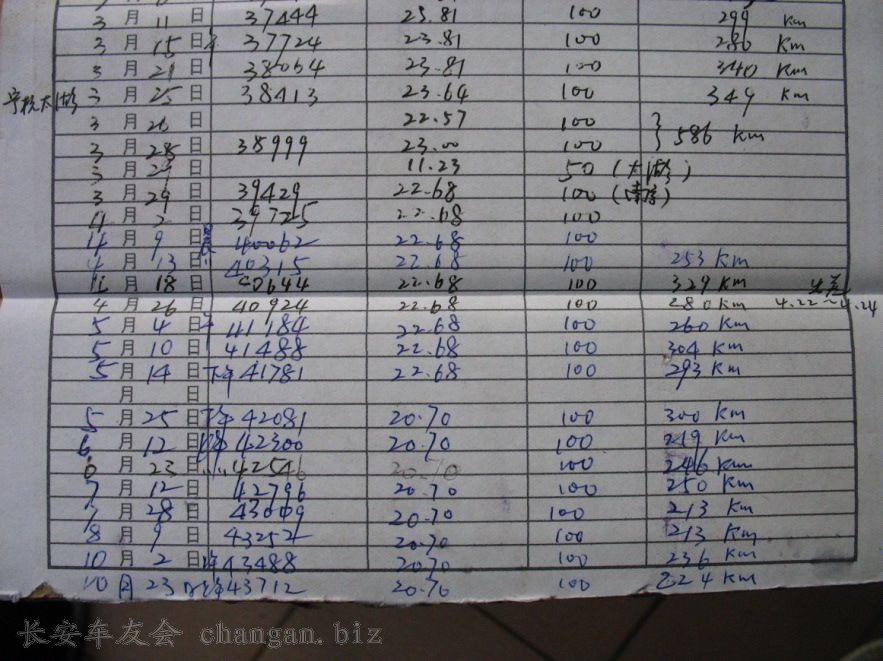 3月11日 37444 23.81 100 299 km
3月15日 37724 23.81 100 280 km
3月21日 38064 23.81 100 340 km
3月25日 38413 23.64 100 349 km
3月26日 22.57 100
3月28日 38999 23.00 100 586 km
3月29日 11.23 50
3月29日 39429 22.68 100
4月2日 39725 22.68 100
4月9日 40062 22.68 100
4月13日 40315 22.68 100 253 km
4月18日 40644 22.68 100 329 km
4月26日 40924 22.68 100 280 km 4.22~4.24
5月4日 41184 22.68 100 260 km
5月10日 41488 22.68 100 304 km
5月14日 下午 41781 22.68 100 293 km
月 日
5月25日 下午 42081 20.70 100 300 km
6月12日 42300 20.70 100 219 km
6月23日 42546 20.70 100 246 km
7月12日 42796 20.70 100 250 km
7月28日 43009 20.70 100 213 km
8月9日 43252 20.70 100 213 km
10月2日 43488 20.70 100 236 km
10月23日 43712 20.70 100 224 km
长安车友会 changan.biz